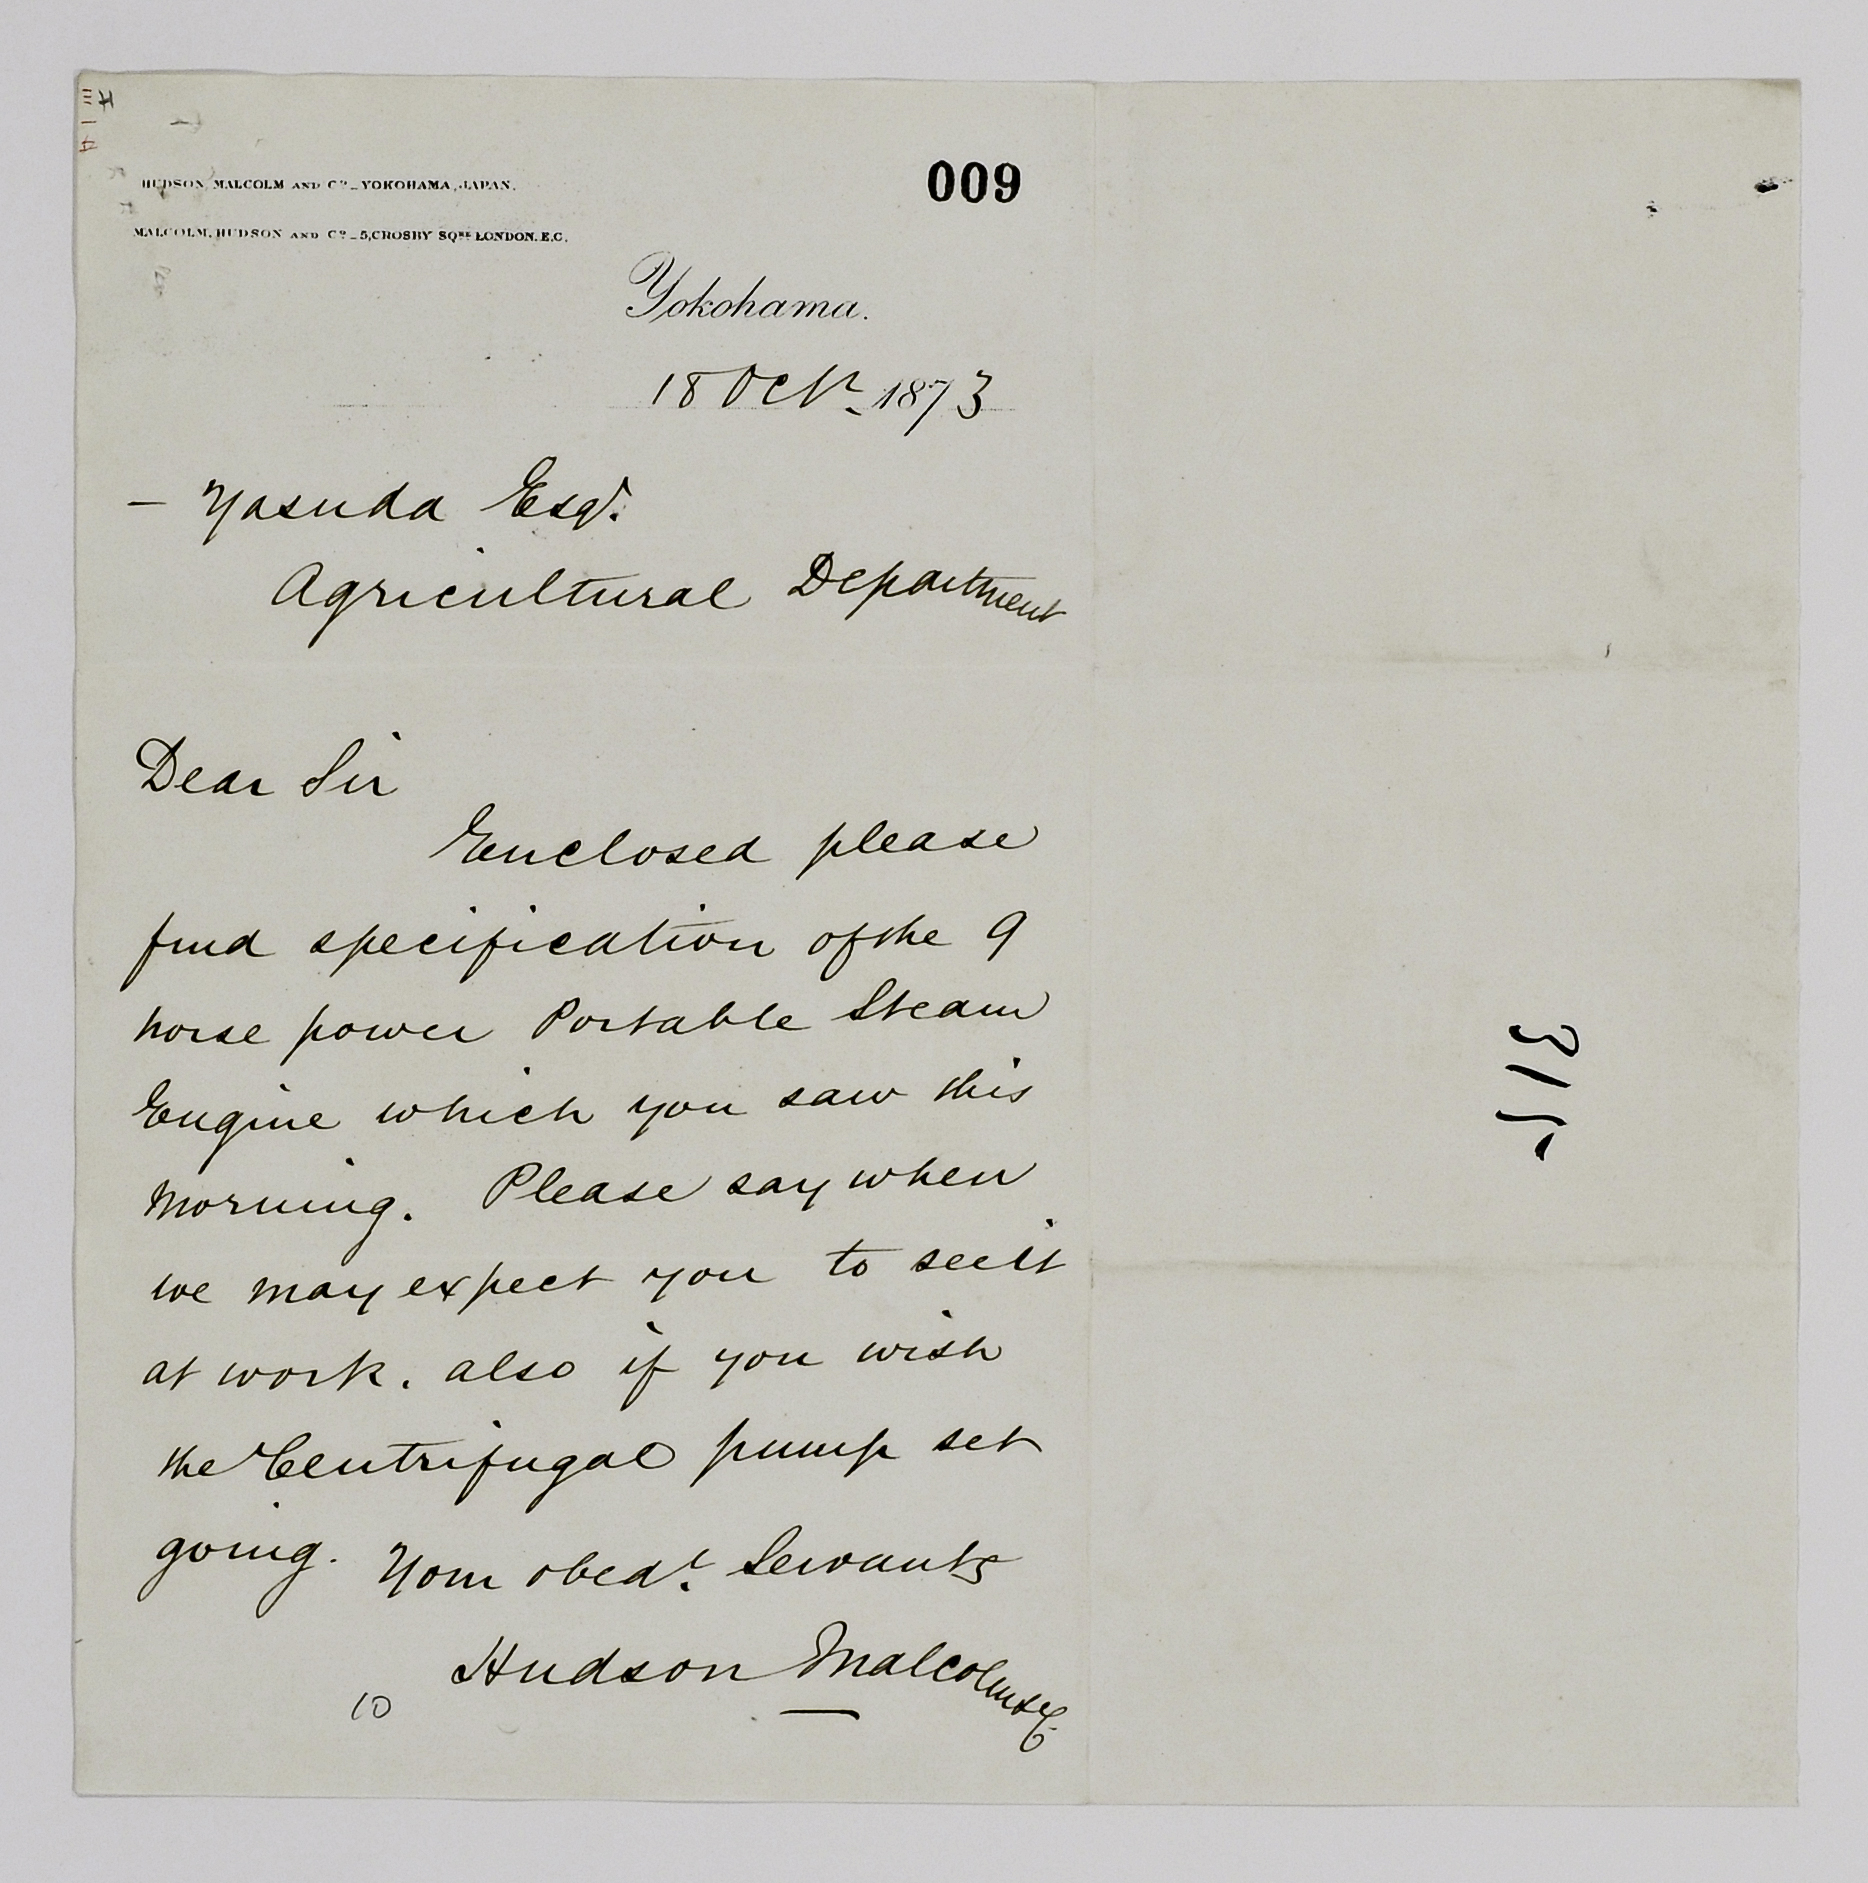 009
HUDSON, MALCOLM AND Cº _ YOKOHAMA, JAPAN.
MALCOLM, HUDSON AND Cº _ 5, CROSBY SQRE LONDON. E.C.
Yokohama.
18 Octr 1873
— Yasuda Esqr.
Agricultural Department
Dear Sir
Enclosed please
find specification of the 9
horse power Portable Steam
Engine which you saw this
morning. Please say when
we may expect you to see it
at work. also if you wish
the Centrifugal pump set
going. Your obedt. Servants
Hudson Malcolm & Co
10